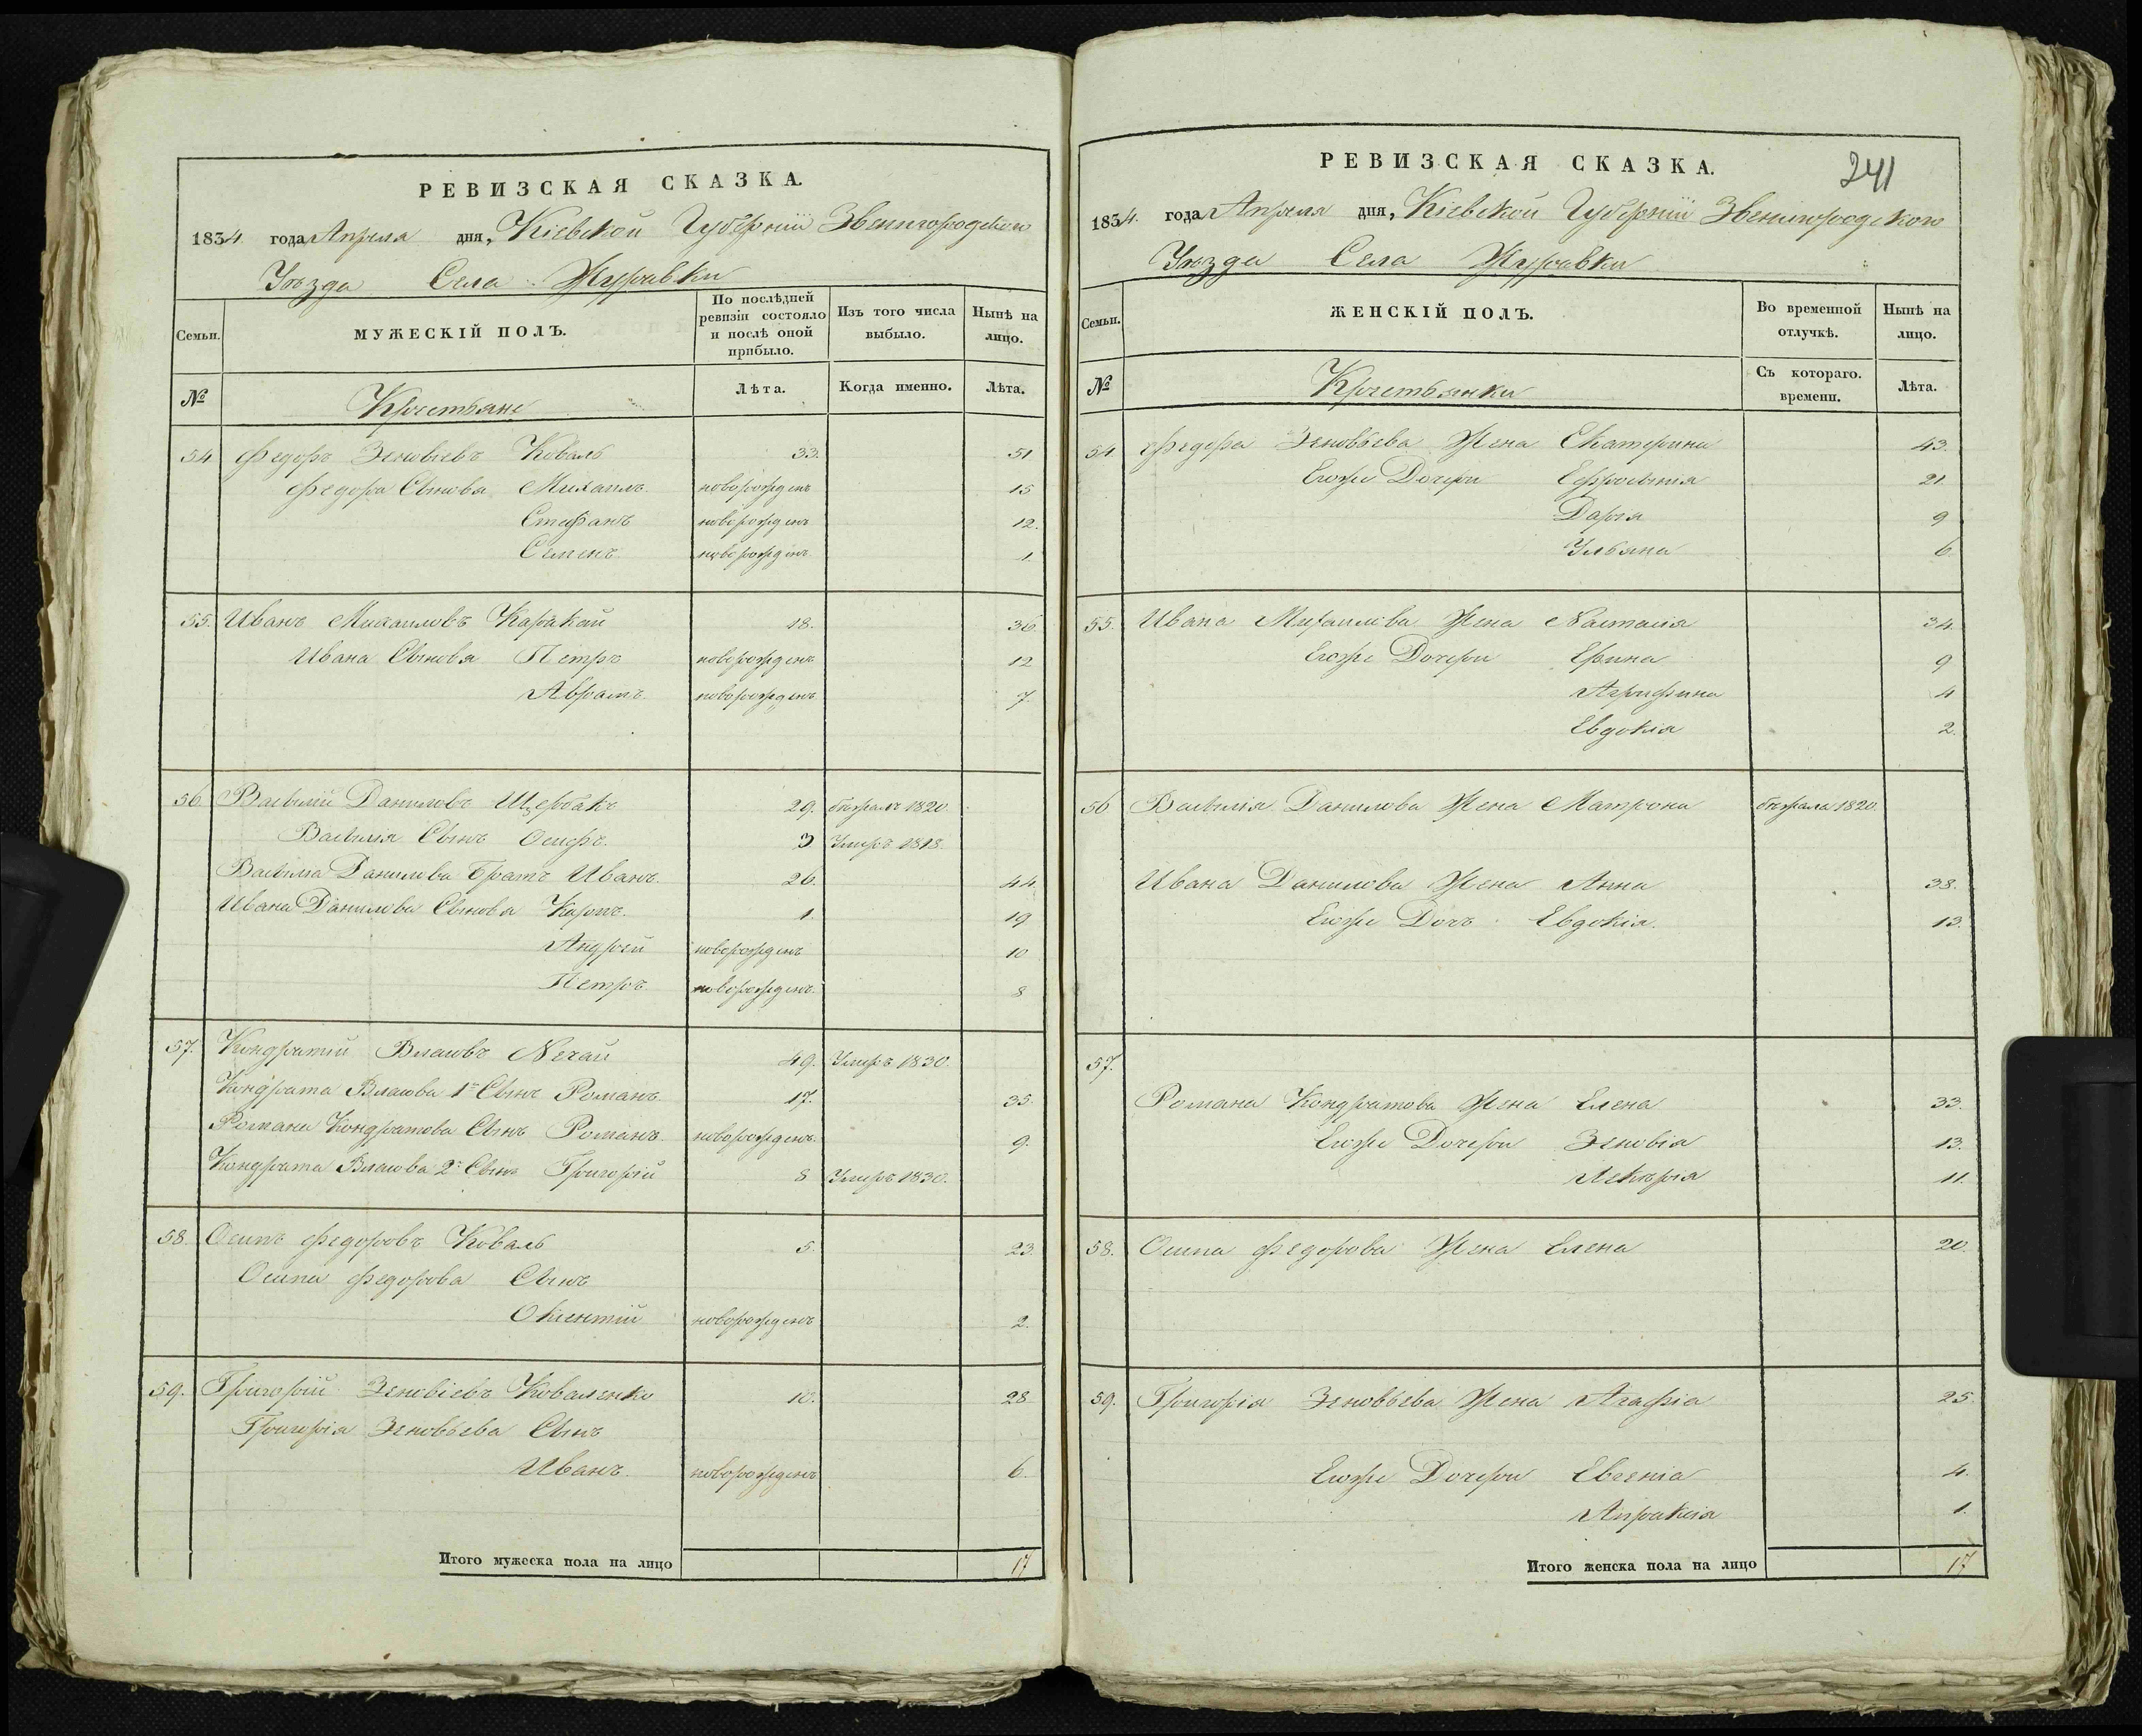 РЕВИЗСКАЯ СКАЗКА.
1834. года Апреля дня, Кіевской Губерніи Звенигородского
Уѣзда Села Журавки
Семьи. МУЖЕСКІЙ ПОЛЪ. По послѣдней ревизіи состояло и послѣ оной прибыло. Изъ того числа выбыло. Нынѣ на лицо.
№ Крестьяне Лѣта. Когда именно. Лѣта.
54 Федоръ Зеновіевъ Коваль 33. 51
Федора Сынова Михаилъ. новорожденъ 15
Стефанъ новорожденъ 12.
Семенъ новорожденъ 1.
55. Иванъ Михаиловъ Каракай 18. 36.
Ивана Сыновя Петръ новорожденъ 12
Аврамъ. новорожденъ 7.
56 Василій Даниловъ Щербакъ 29. бѣжалъ 1820.
Василія Сынъ Осифъ. 3 Умеръ 1818.
Василіа Данилова Братъ Иванъ. 26. 44.
Ивана Данилова Сыновя Карпъ. 1. 19
Андрей новорожденъ 10
Петръ. новорожденъ. 8
57. Кондратій Власовъ Нечай 49. Умеръ 1830.
Кондрата Власова 1й Сынъ Романъ. 17. 35.
Романа Кондратова Сынъ Романъ. новорожденъ. 9.
Кондрата Власова 2й Сынъ Григорій 8 Умеръ 1830.
58. Осипъ Федоровъ Коваль 5. 23.
Осипа Федорова Сынъ
Оксентій новорожденъ 2.
59. Григорій Зеновіевъ Коваленко 10. 28
Григорія Зеновьева Сынъ
Иванъ. новорожденъ 6.
Итого мужеска пола на лицо 17
РЕВИЗСКАЯ СКАЗКА.
241
1834. года Апреля дня, Кіевской Губерніи Звенигородского
Уѣзда Села Журавки
Семьи. ЖЕНСКІЙ ПОЛЪ. Во временной отлучкѣ. Нынѣ на лицо.
№ Крестьянки Съ котораго. времени. Лѣта.
54. Федора Зеновьева Жена Екатерина 43.
Егоже Дочери Ефросынія 21.
Дарія 9
Ульяна 6.
55. Ивана Михаилова Жена Настасія 34.
Егоже Дочери Ерина 9
Агрифина 4
Евдокія 2.
56. Василія Данилова Жена Матрона бѣжала 1820.
Ивана Данилова Жена Анна 38.
Егоже Дочъ Евдокія. 13.
57.
Романа Кондратова Жена Елена 33.
Егоже Дочери Зеновіа 13.
11.
58. Осипа Федорова Жена Елена 20.
59. Григорія Зеновьева Жена Агафіа 25.
Егоже Дочери Евгенія 4.
Апраксія 1.
Итого женска пола на лицо 17